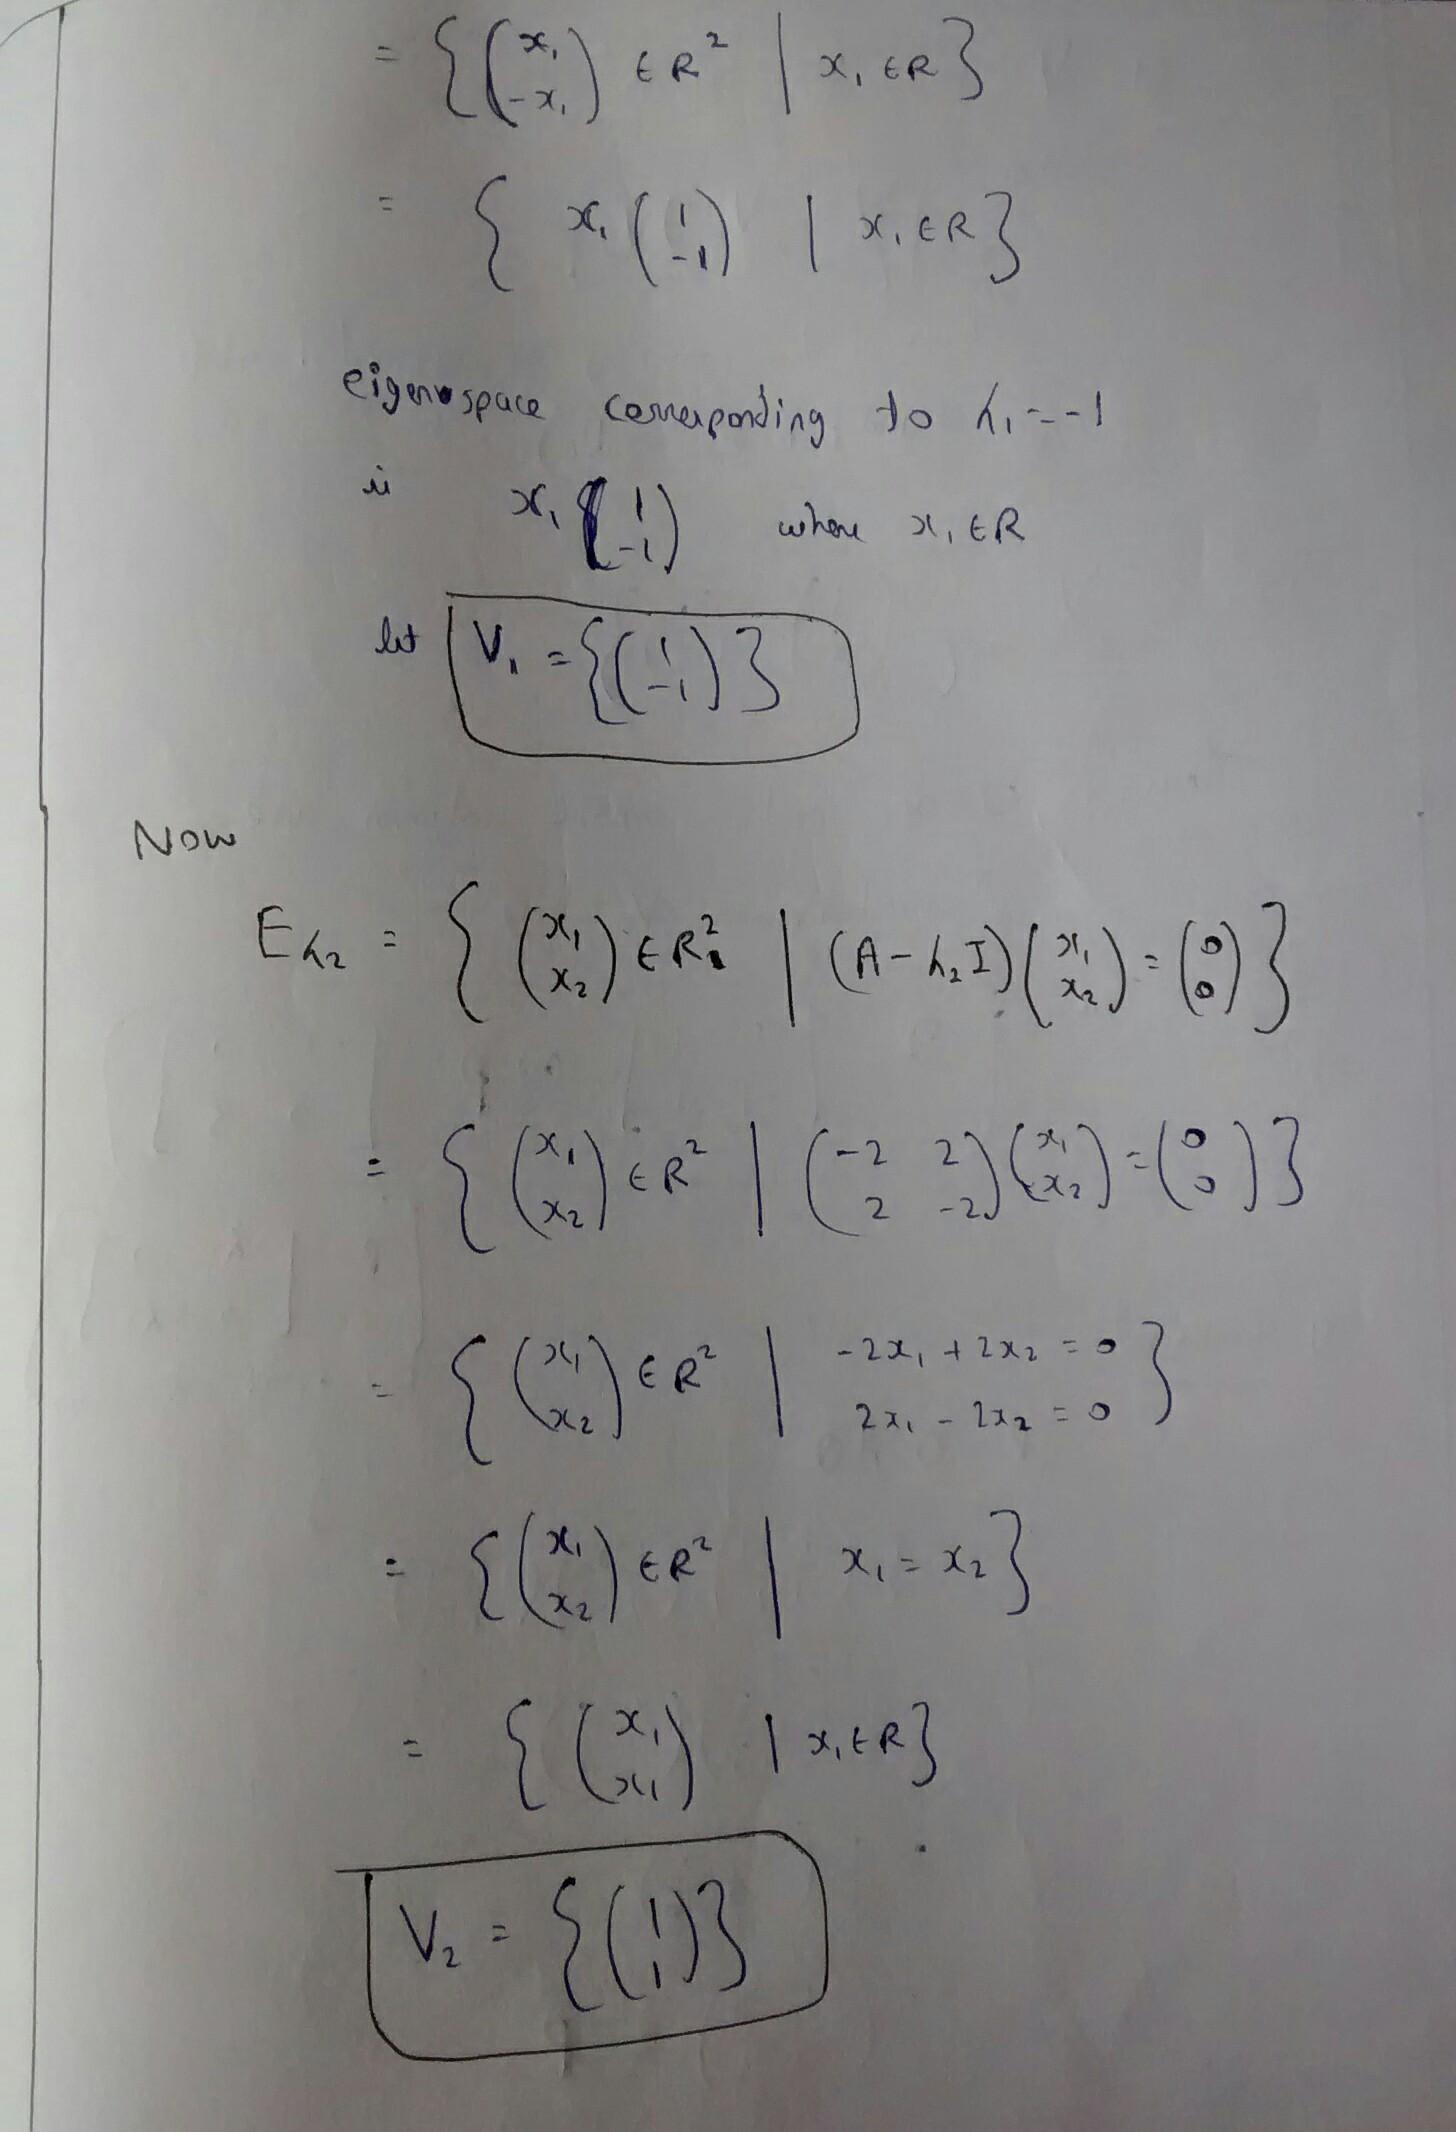 = {(x₁ -x₁) ∈ R² | x₁ ∈ R}
= { x₁ (1 -1) | x₁ ∈ R}
eigenspace corresponding to λ₁ = -1
is x₁ (1 -1) where x₁ ∈ R
let V₁ = {(1 -1)}
Now
Eλ₂ = { (x₁ x₂) ∈ R² | (A - λ₂I)(x₁ x₂) = (0 0) }
= { (x₁ x₂) ∈ R² | (-2 2 2 -2)(x₁ x₂) = (0 0) }
= { (x₁ x₂) ∈ R² | -2x₁ + 2x₂ = 0
2x₁ - 2x₂ = 0 }
= { (x₁ x₂) ∈ R² | x₁ = x₂ }
= { (x₁ x₁) | x₁ ∈ R }
V₂ = {(1 1)}